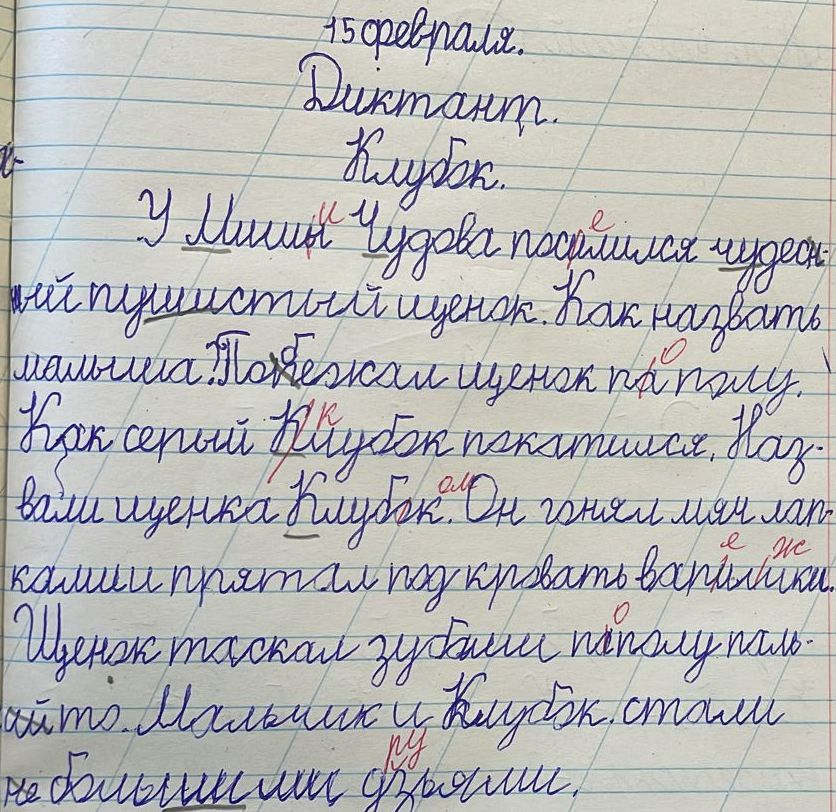 15 февраля.
Диктант.
Клубок.
У Мишы Чудова посилился чудесн-
ный пушистый щенок. Как назвать
малыша? Побежал щенок па полу.
Как серый Клубок покатился. Наз-
вали щенка Клубок. Он гонял мяч лап-
ками прятал под кровать варишки.
Щенок таскал зубами па полу паль-
то. Мальчик и Клубок стали
большими дзьями.